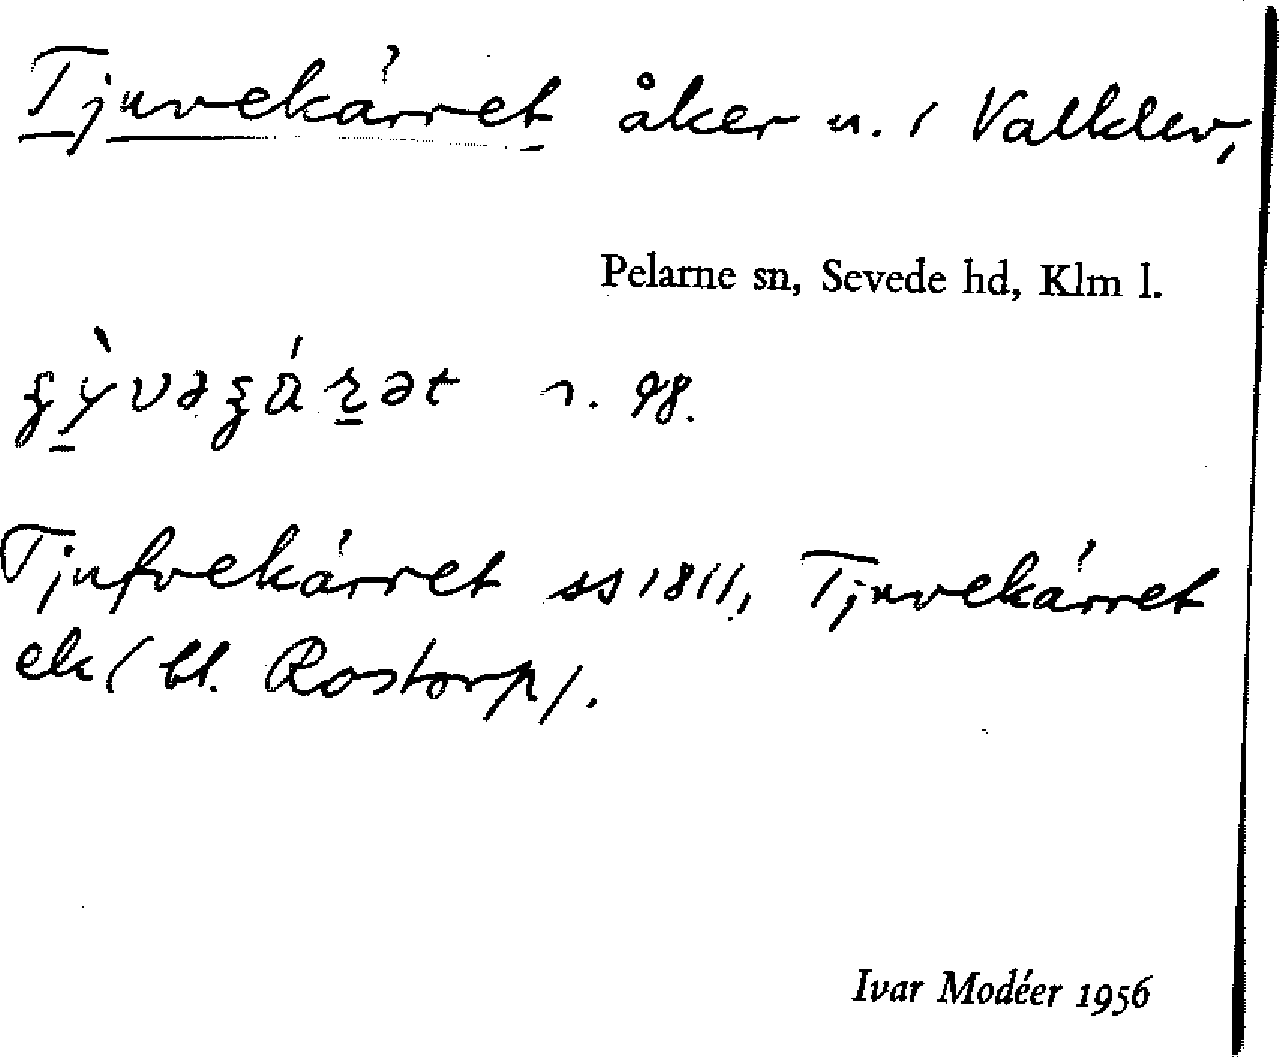 Tjuvekärret åker n. i Valklev,
Pelarne sn, Sevede hd, Klm l.
n. 98.
Tjufvekärret ss 1811, Tjuvekärret
ek (bl. Rostorp).
Ivar Modéer 1956